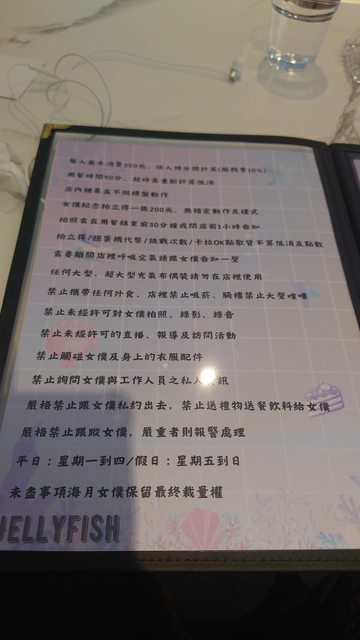 每人基本消費200元，依人頭分開計算(服務費10%)
用餐時間90分，超時需重新計算低消
店內糖果盒不做續盤動作
女僕紀念拍立得一張200元，無指定動作及樣式
拍照需在用餐結束前30分鐘或閉店前1小時告知
拍立得/扭蛋機代幣/挑戰次數/卡拉OK點歌皆不算低消及點數
需要離開店裡呼吸空氣請跟女僕告知一聲
任何大型、超大型充氣布偶裝請勿在店裡使用
禁止攜帶任何外食、店裡禁止吸菸、騎樓禁止大聲喧嘩
禁止未經許可對女僕拍照、錄影、錄音
禁止未經許可的直播、報導及訪問活動
禁止觸碰女僕及身上的衣服配件
禁止詢問女僕與工作人員之私人資訊
嚴格禁止跟女僕私約出去，禁止送禮物送餐飲料給女僕
嚴格禁止跟蹤女僕，嚴重者則報警處理
平日：星期一到四/假日：星期五到日
未盡事項海月女僕保留最終裁量權
JELLYFISH